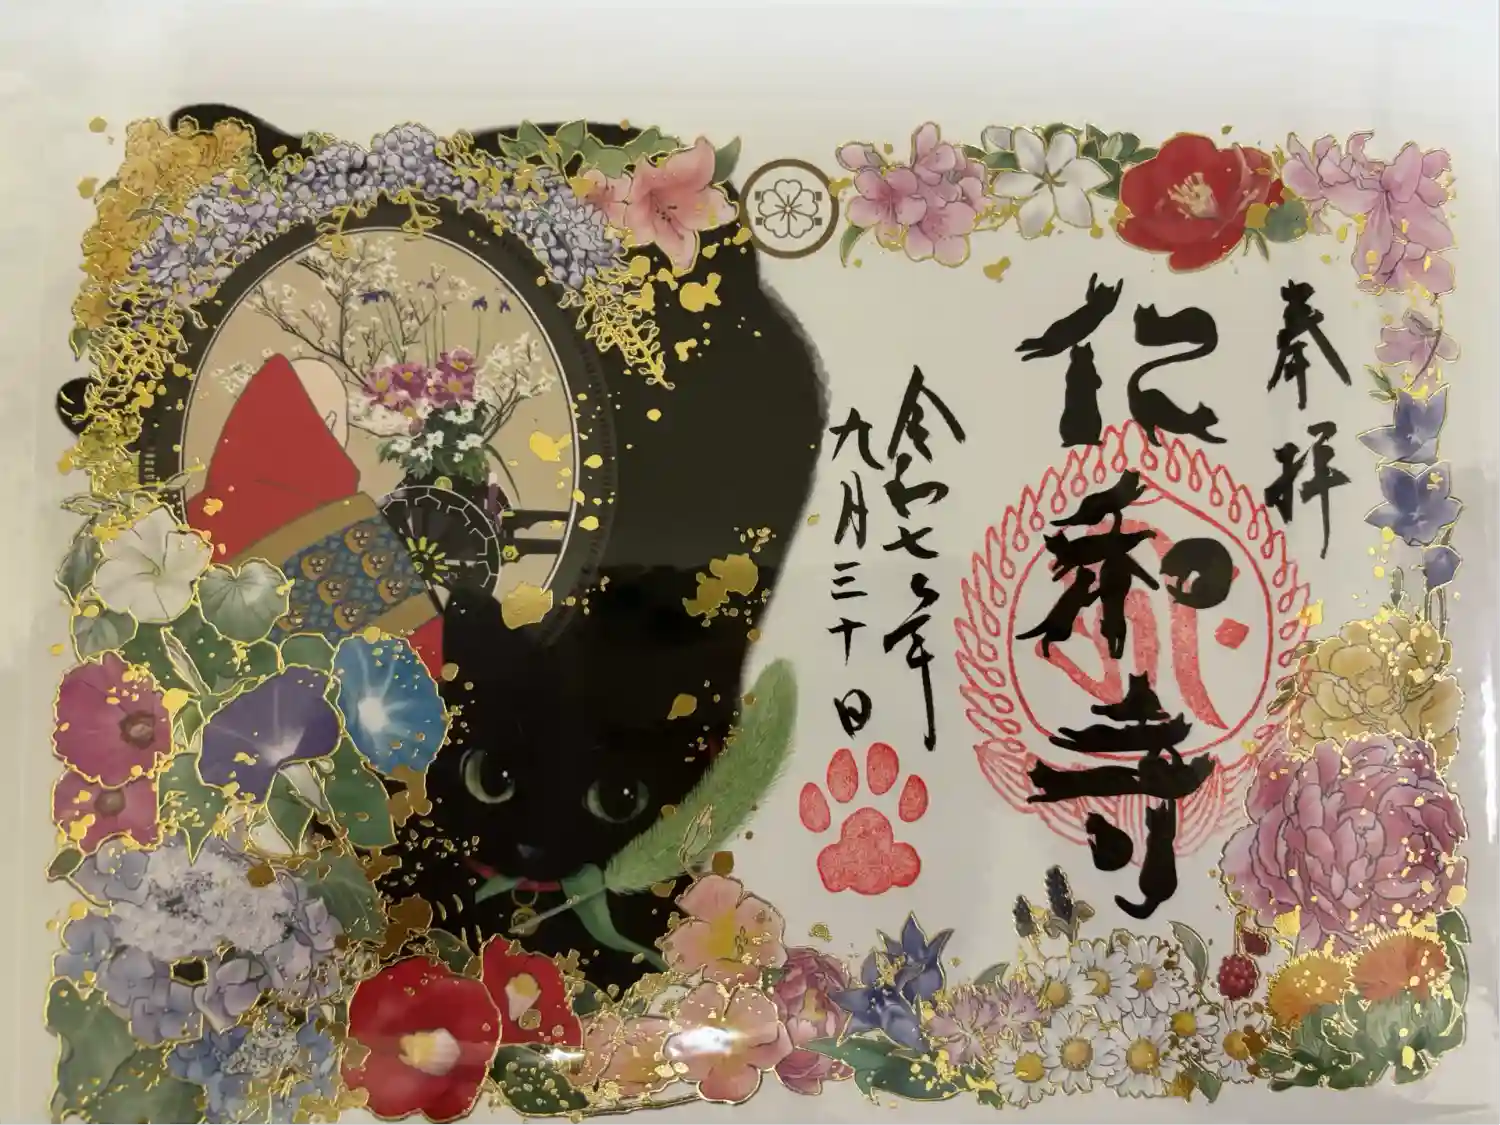 奉拝
仁和寺
令和七年
九月三十日